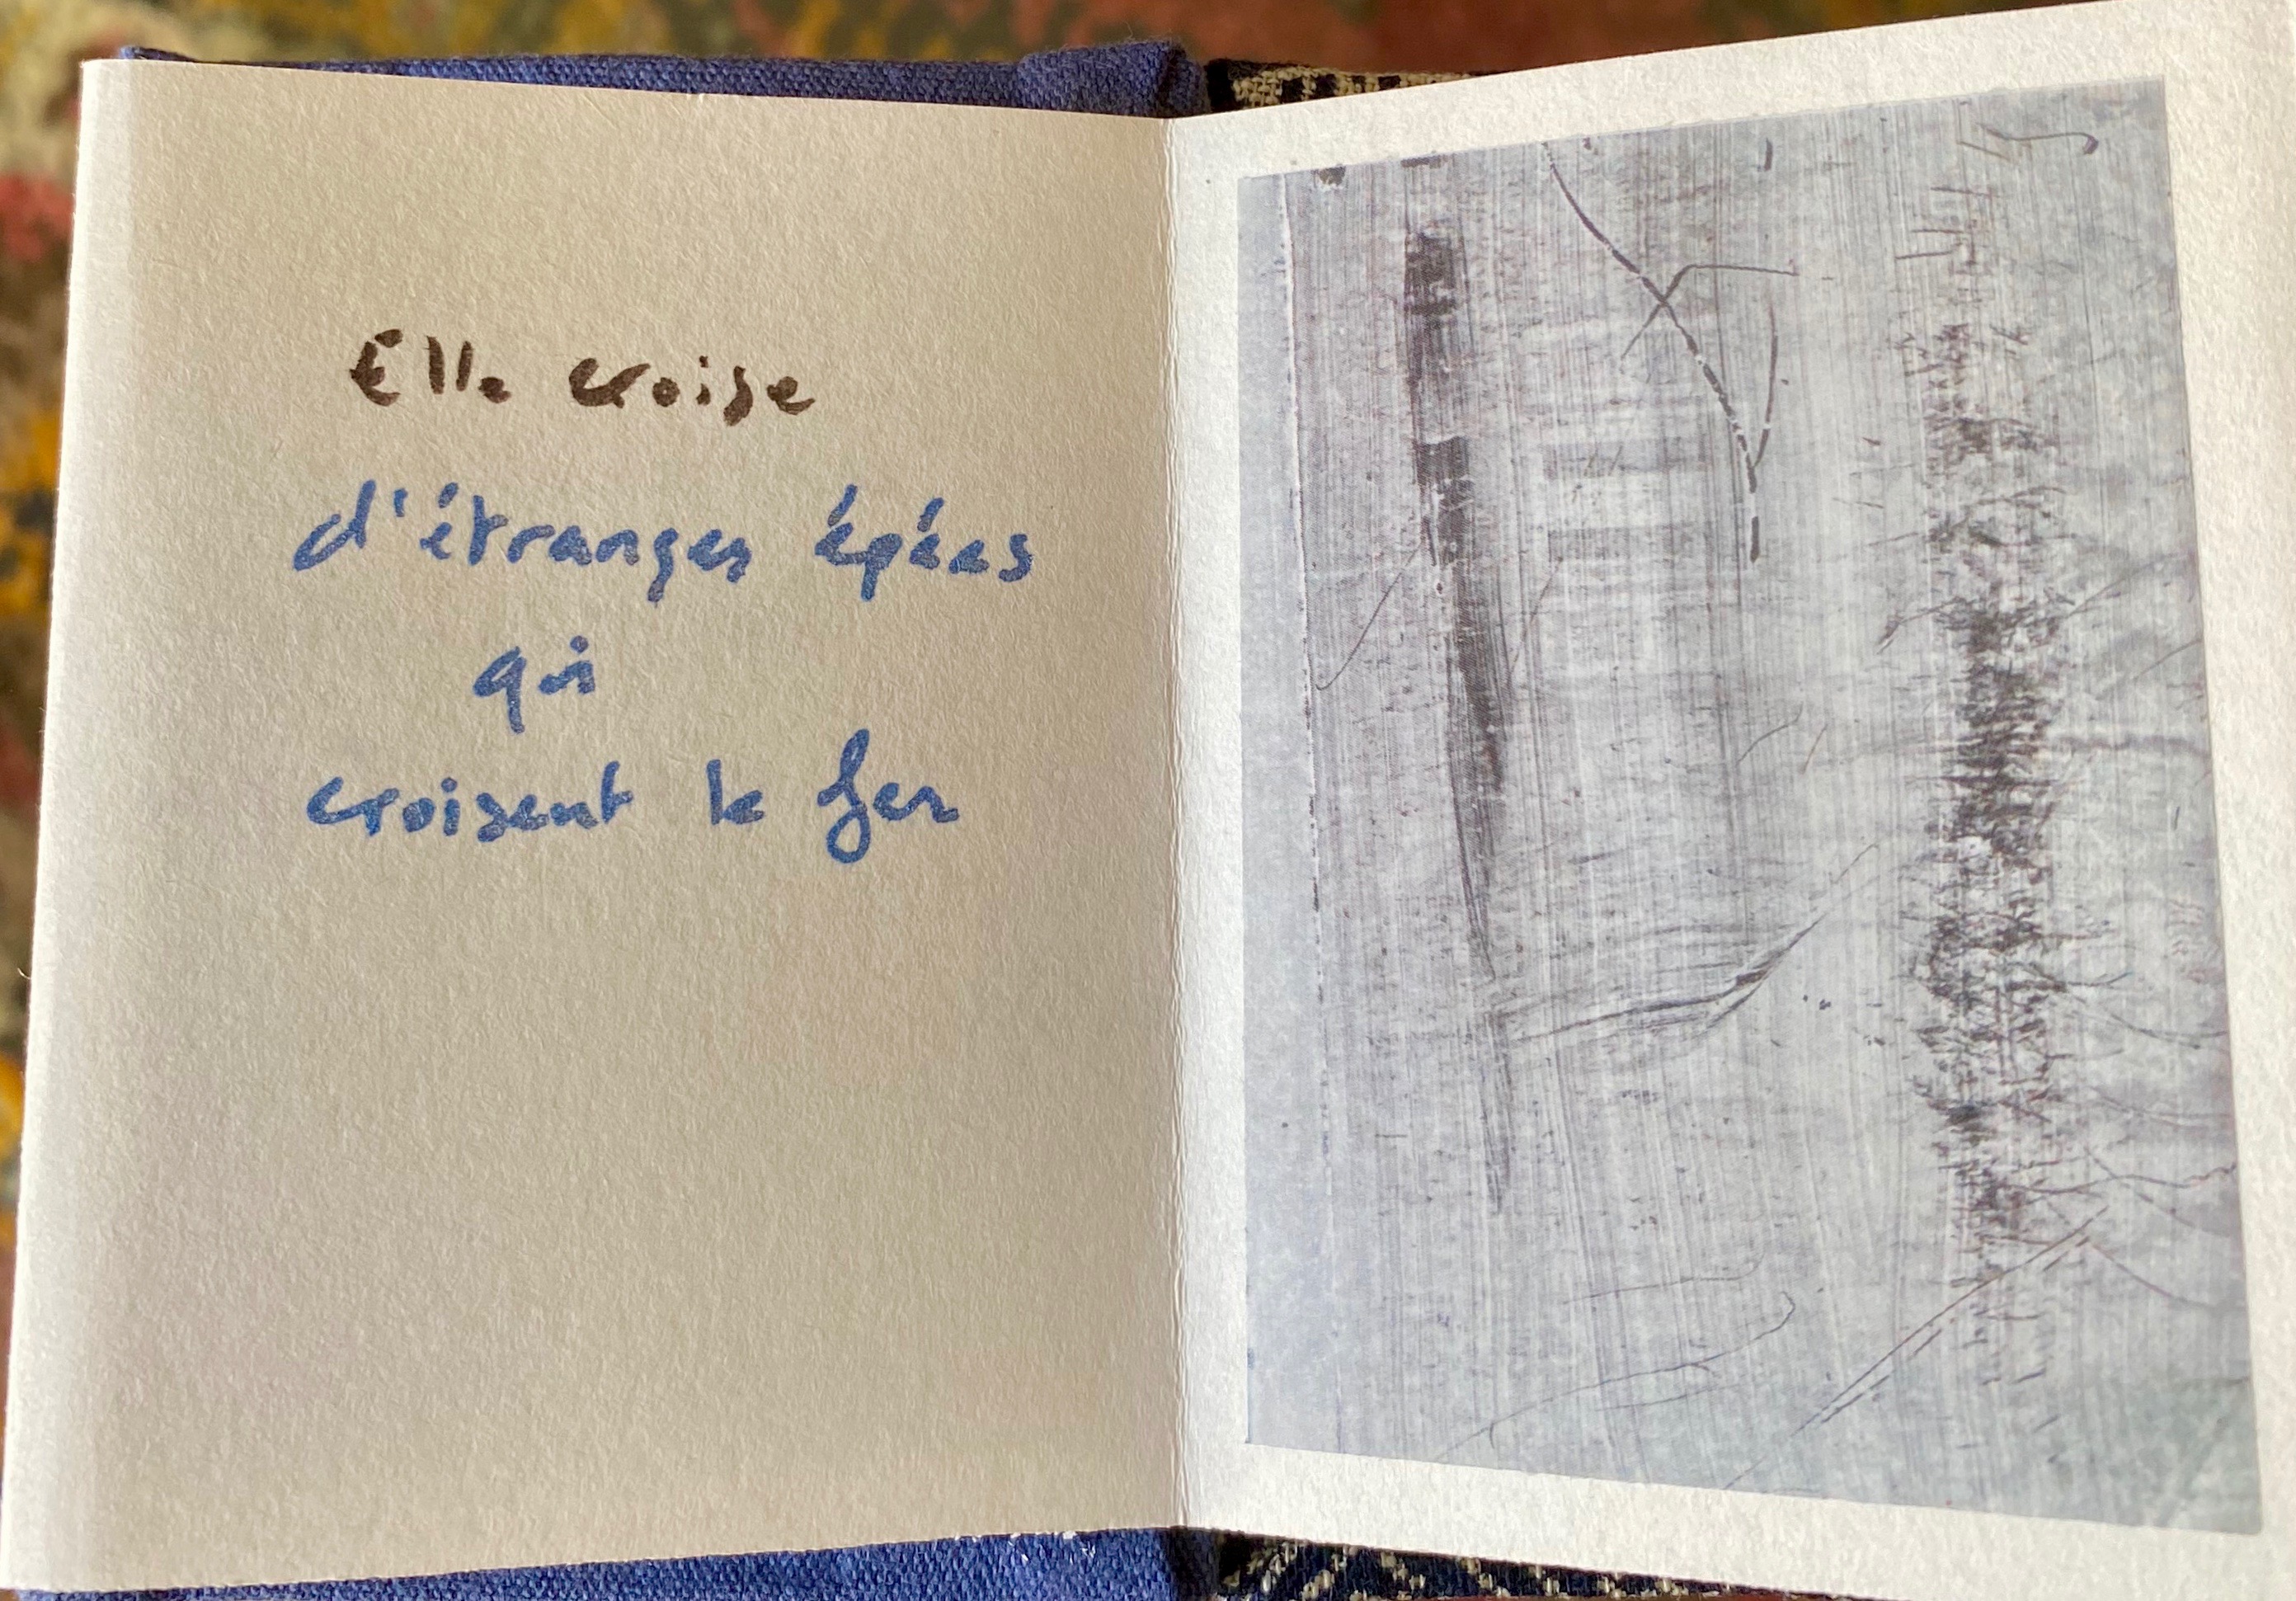 Elle croise
d'étranges épées
qui
croisent le fer